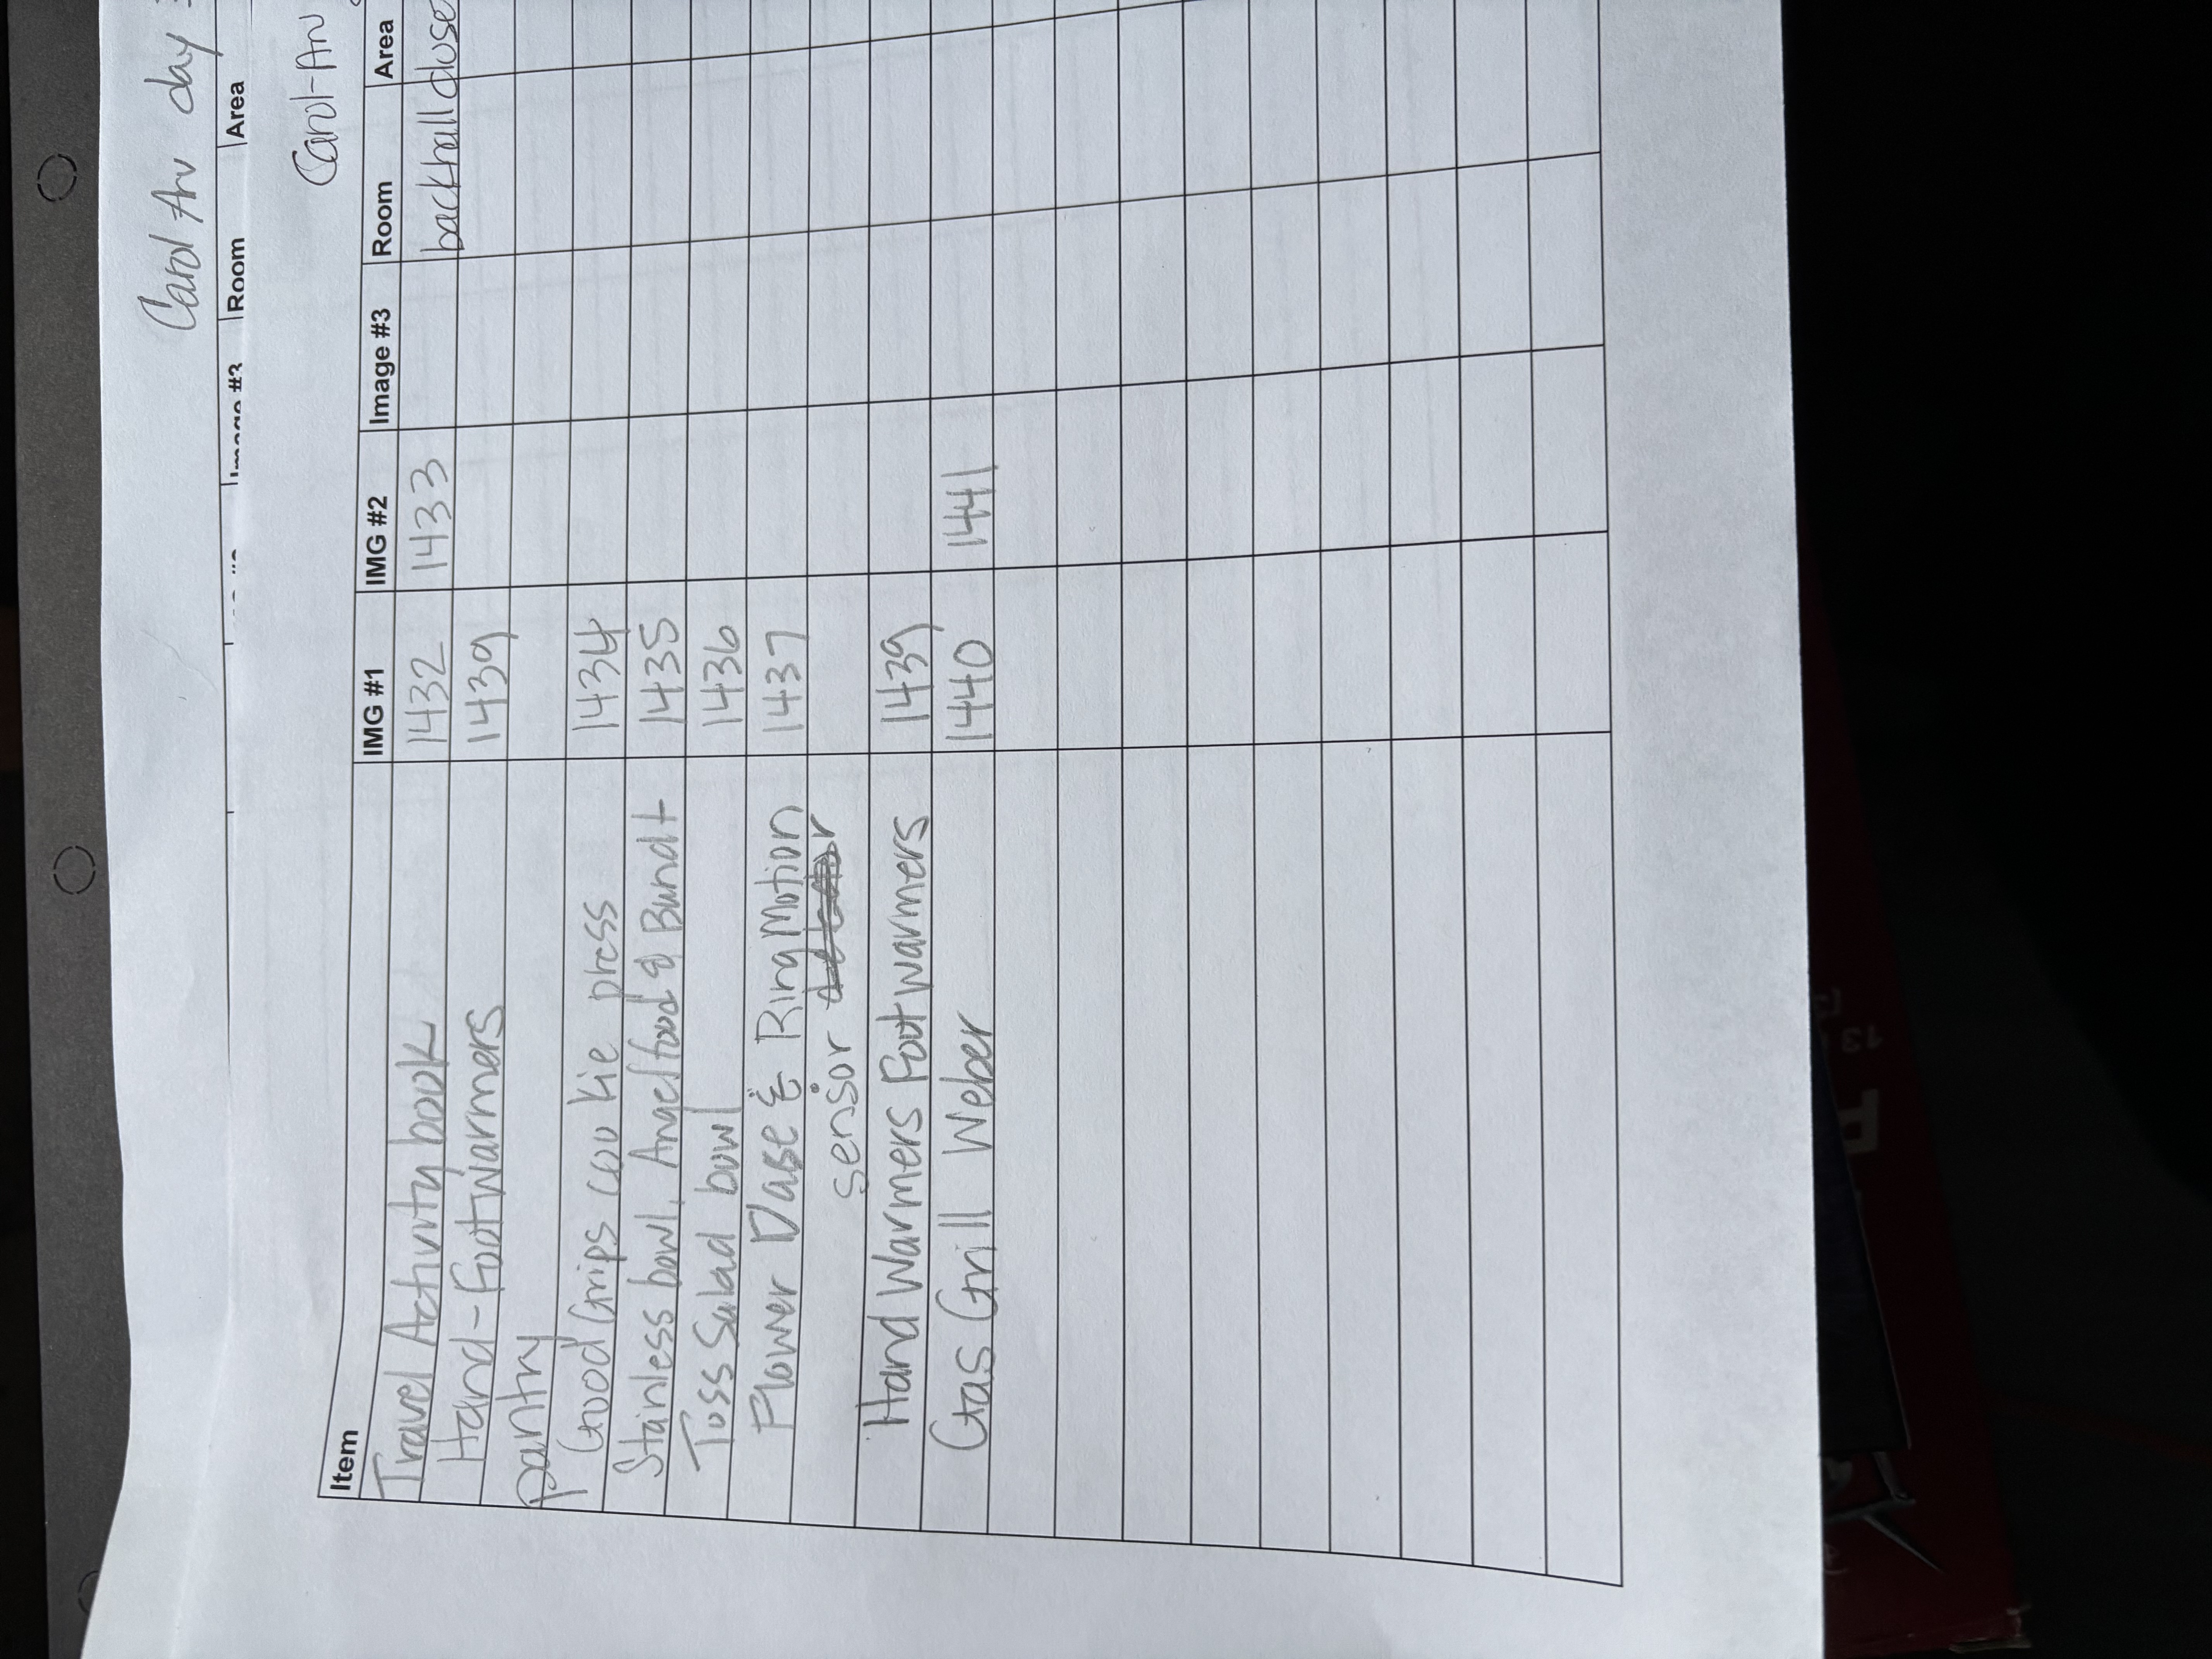 Carol Arv day
Image #3 Room Area
Carol-Arv
Item IMG #1 IMG #2 Image #3 Room Area
Travel Activity book 1432 1433 backhall close
Hand-Footwarmers 1439
pantry
Good Grips coo kie press 1434
Stainless bowl, Angelfood & Bundt 1435
Toss Salad bowl 1436
Flower Vase & Ring Motion 1437
sensor
Hand Warmers Footwarmers 1439
Gas Grill Weber 1440 1441